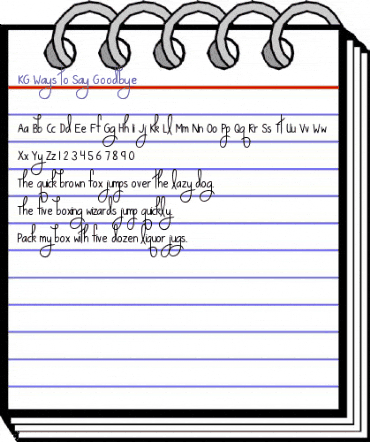 KG Ways to Say Goodbye
Aa Bb Cc Dd Ee Ff Gg Hh Ii Jj Kk Ll Mm Nn Oo Pp Qq Rr Ss Tt Uu Vv Ww
Xx Yy Zz 1 2 3 4 5 6 7 8 9 0
The quick brown fox jumps over the lazy dog.
The five boxing wizards jump quickly.
Pack my box with five dozen liquor jugs.